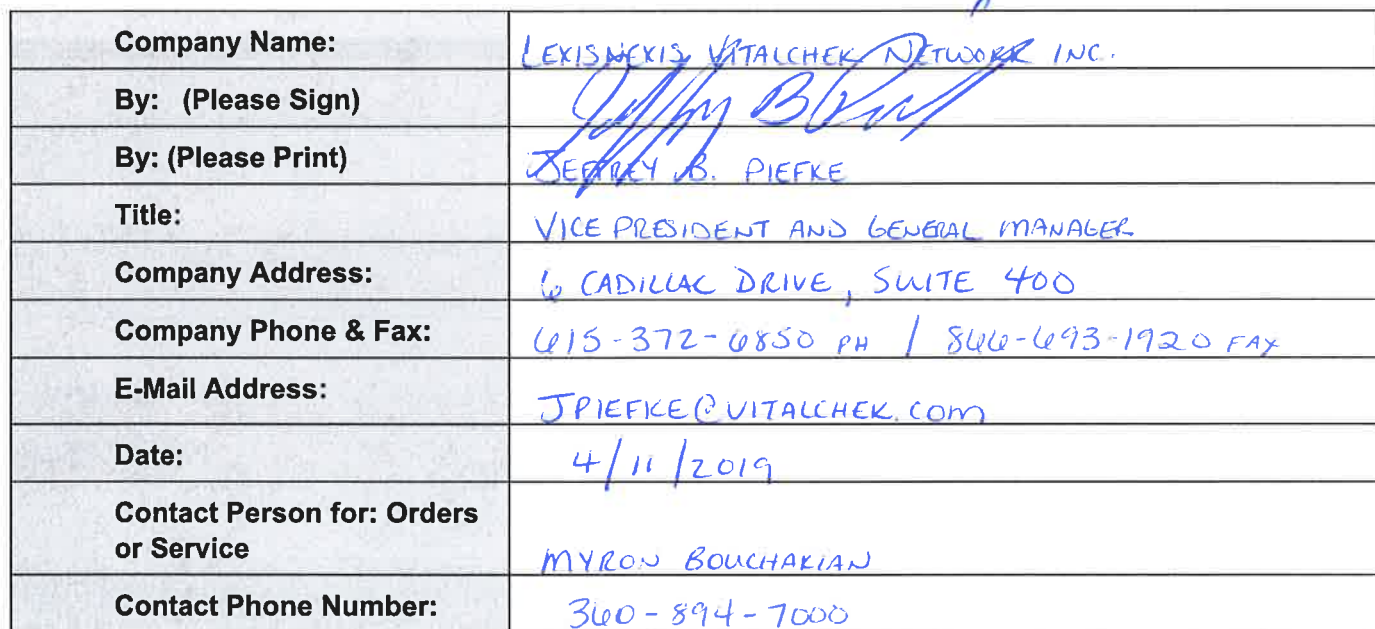 Company Name: LEXISNEXIS VITALCHEK NETWORK INC.
By: (Please Sign)
By: (Please Print) JEFFREY B. PIEFKE
Title: VICE PRESIDENT AND GENERAL MANAGER
Company Address: 6 CADILLAC DRIVE, SUITE 400
Company Phone & Fax: 615-372-6850 PH / 866-693-1920 FAX
E-Mail Address: JPIEFKE@VITALCHEK.COM
Date: 4/11/2019
Contact Person for: Orders
or Service MYRON BOUCHAKIAN
Contact Phone Number: 360-894-7000